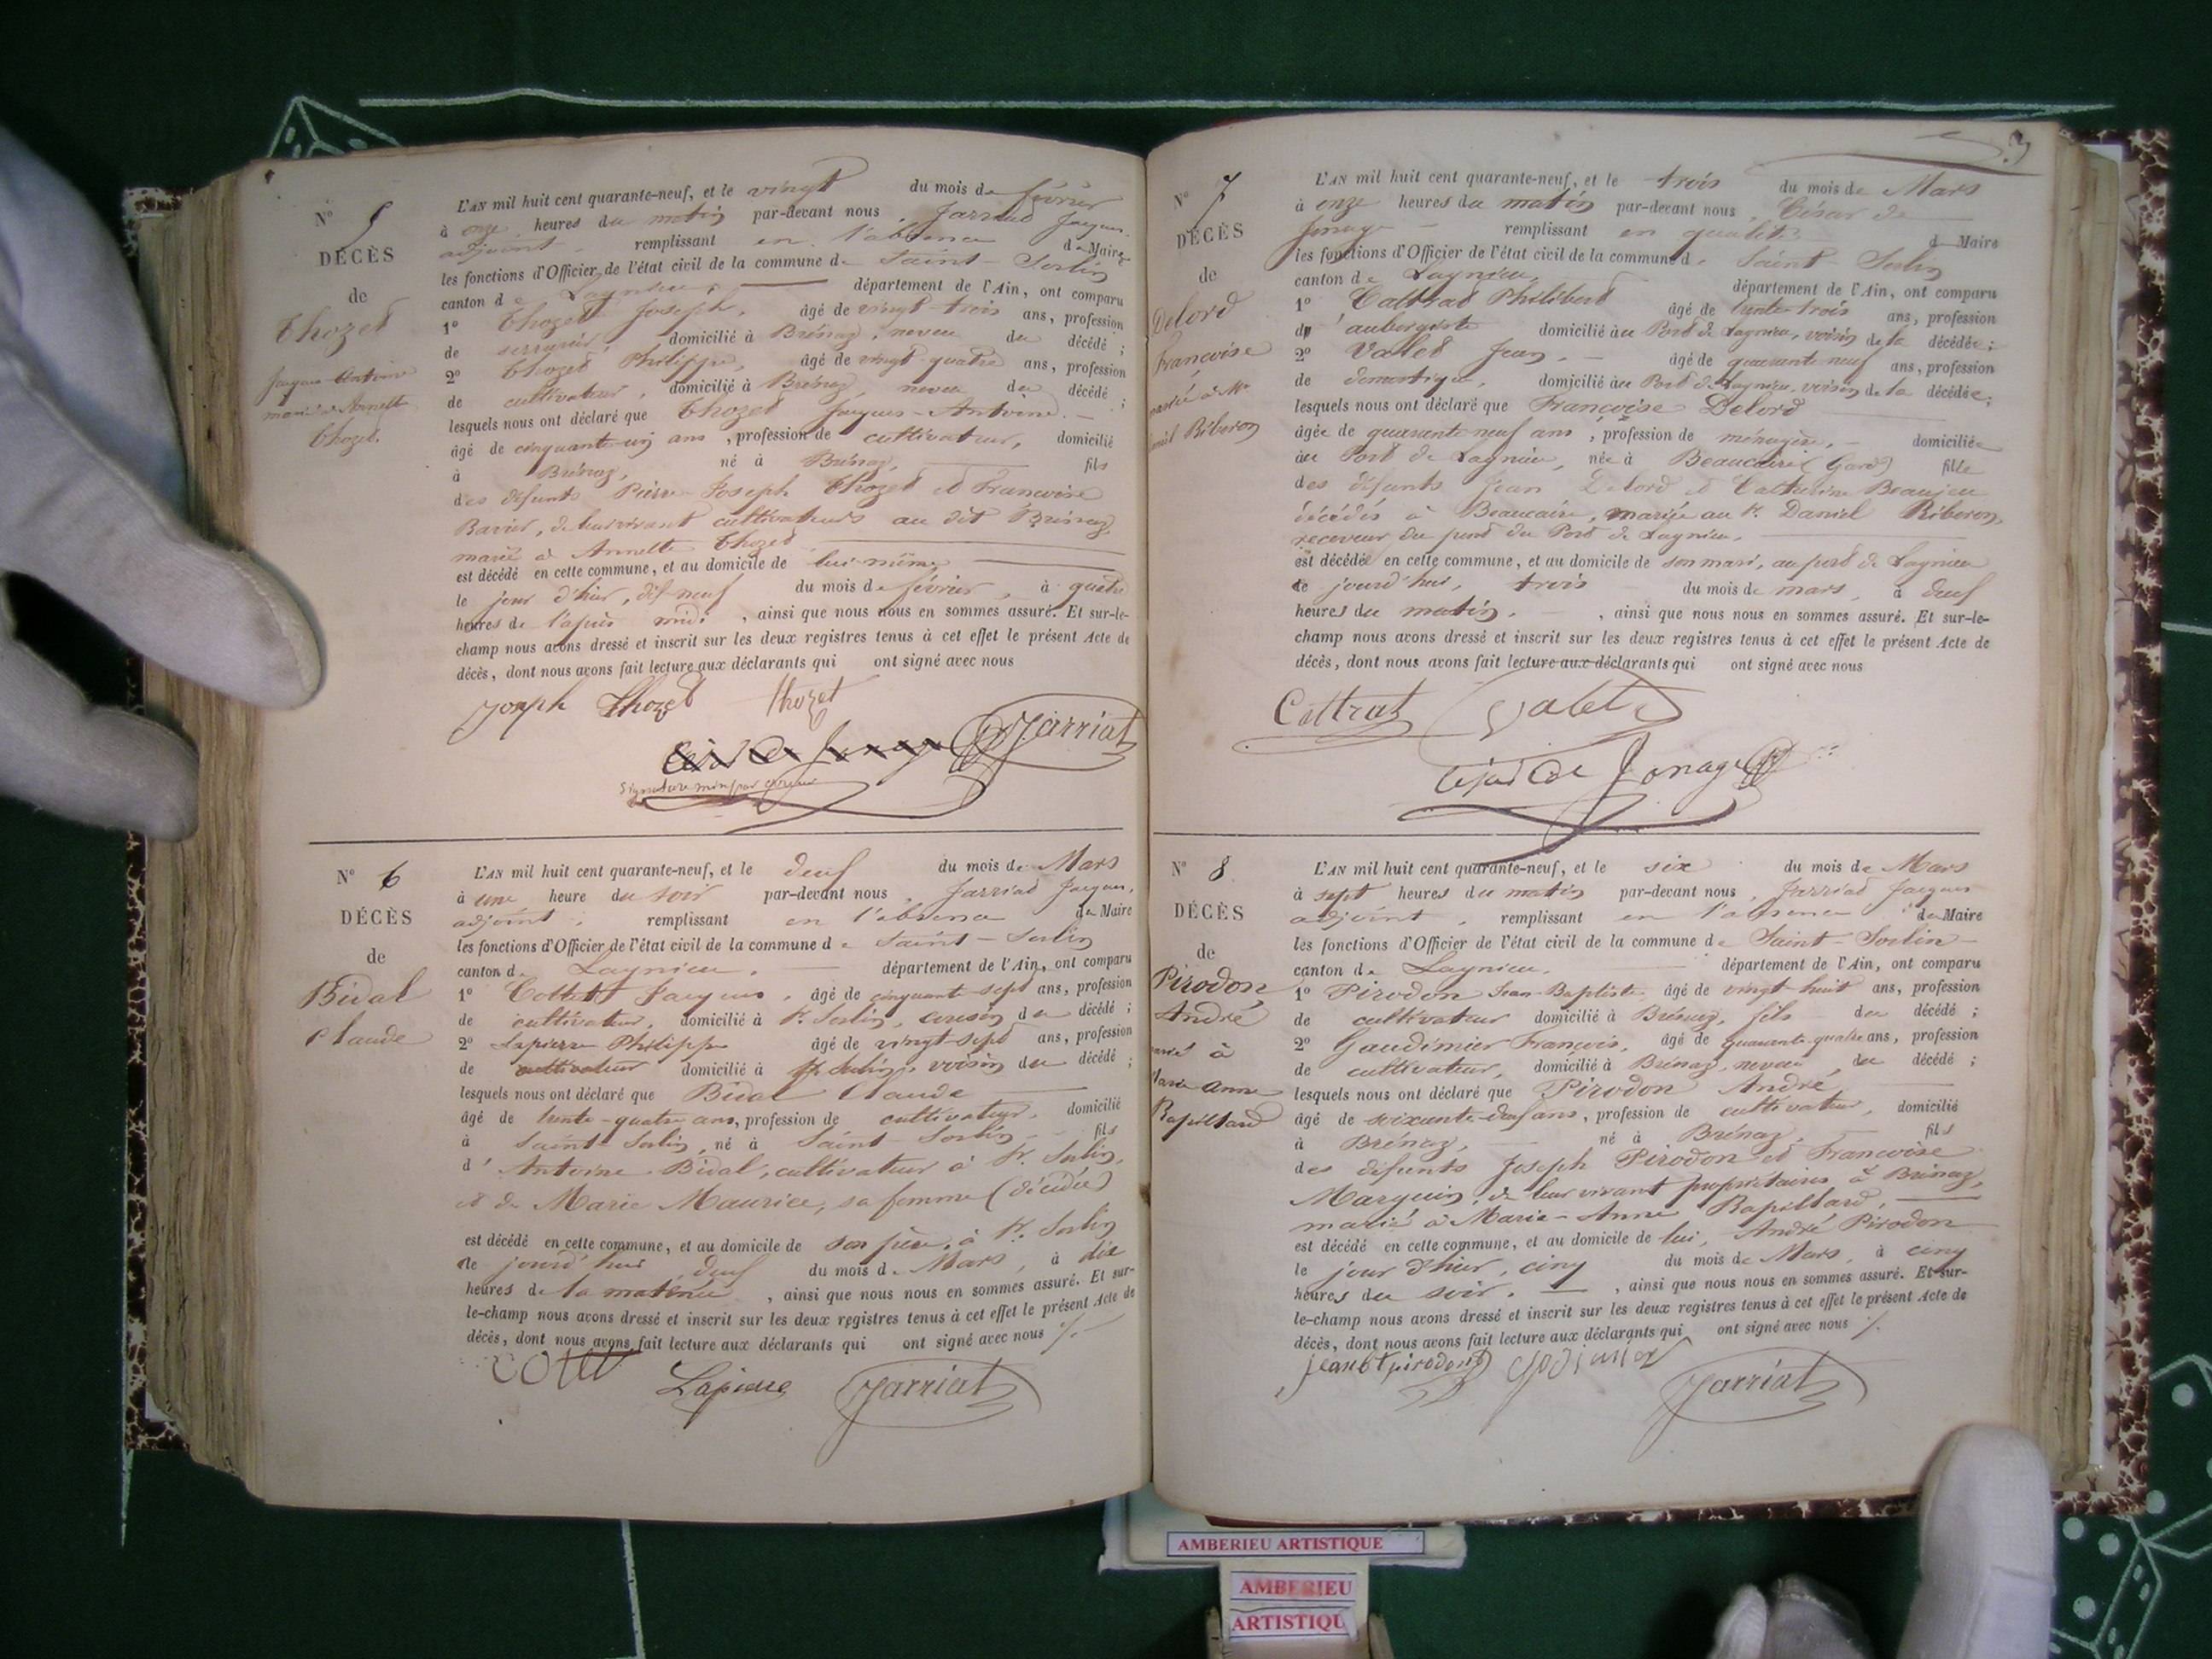 N° 5
DÉCÈS
de
Thozet
Jacques Antoine
marié à Annette
Thozet.
L'AN mil huit cent quarante-neuf, et le vingt du mois de février
à onze heures du matin par-devant nous, Jarriat Jacques
adjoint remplissant en l'absence du Maire
les fonctions d'Officier de l'état civil de la commune de Saint-Sorlin
canton de Lagnieu, département de l'Ain, ont comparu
1° Thozet Joseph, âgé de vingt-trois ans, profession
de serrurier, domicilié à Brénaz, neveu du décédé ;
2° Thozet Philippe, âgé de vingt quatre ans, profession
de cultivateur, domicilié à Brénaz, neveu du décédé ;
lesquels nous ont déclaré que Thozet Jacques-Antoine
âgé de cinquante-un ans, profession de cultivateur, domicilié
à Brénaz, né à Brénaz, fils
des défunts Pierre-Joseph Thozet et Françoise
Bavier, de leur vivant cultivateurs au dit Brénaz,
marié à Annette Thozet
est décédé en cette commune, et au domicile de lui-même
le jour d'hier, dix neuf du mois de février, à quatre
heures de l'après midi, ainsi que nous nous en sommes assuré. Et sur-le-
champ nous avons dressé et inscrit sur les deux registres tenus à cet effet le présent Acte de
décès, dont nous avons fait lecture aux déclarants qui ont signé avec nous
Joseph Thozet Thozet
César de Jonage Jarriat
Signature mise par erreur
N° 6
DÉCÈS
de
Bidal
Claude
L'AN mil huit cent quarante-neuf, et le deux du mois de Mars
à une heure du soir par-devant nous, Jarriat Jacques,
adjoint, remplissant en l'absence du Maire
les fonctions d'Officier de l'état civil de la commune de Saint-Sorlin
canton de Lagnieu, département de l'Ain, ont comparu
1° Cottet Jacques, âgé de cinquante sept ans, profession
de cultivateur, domicilié à St. Sorlin, cousin du décédé ;
2° Lapierre Philippe âgé de vingt-sept ans, profession
de cultivateur domicilié à St. Sorlin, voisin du décédé ;
lesquels nous ont déclaré que Bidal Claude
âgé de trente-quatre ans, profession de cultivateur, domicilié
à Saint-Sorlin, né à Saint Sorlin, fils
d'Antoine Bidal, cultivateur à St. Sorlin,
et de Marie Maurice, sa femme (décédée)
est décédé en cette commune, et au domicile de son père, à St. Sorlin
le jourd'hui, deux du mois de Mars, à dix
heures de la matinée, ainsi que nous nous en sommes assuré. Et sur-
le-champ nous avons dressé et inscrit sur les deux registres tenus à cet effet le présent Acte de
décès, dont nous avons fait lecture aux déclarants qui ont signé avec nous
Cottet Lapierre Jarriat
3
N° 7
DÉCÈS
de
Delord
Françoise
mariée à Mr
Riberon
L'AN mil huit cent quarante-neuf, et le trois du mois de Mars
à onze heures du matin par-devant nous, César de
Jonage remplissant en qualité de Maire
les fonctions d'Officier de l'état civil de la commune de Saint-Sorlin
canton de Lagnieu, département de l'Ain, ont comparu
1° Cattrat Philibert âgé de trente-trois ans, profession
d'aubergiste domicilié au Port de Lagnieu, voisin de la décédée ;
2° Valet Jean, âgé de quarante neuf ans, profession
de domestique, domicilié au Port de Lagnieu, voisin de la décédée ;
lesquels nous ont déclaré que Françoise Delord
âgée de quarante neuf ans, profession de ménagère, domiciliée
au Port de Lagnieu, née à Beaucaire (Gard) fille
des défunts Jean Delord et Catherine Beaujeu
décédés à Beaucaire, mariée au Sr. Daniel Riberon,
receveur du pont du Port de Lagnieu,
est décédée en cette commune, et au domicile de son mari, au port de Lagnieu
le jourd'hui, trois du mois de mars, à deux
heures du matin, ainsi que nous nous en sommes assuré. Et sur-le-
champ nous avons dressé et inscrit sur les deux registres tenus à cet effet le présent Acte de
décès, dont nous avons fait lecture aux déclarants qui ont signé avec nous
Cattrat Valet
César de Jonage
N° 8
DÉCÈS
de
Pirodon
André
marié à
Marie anne
Rapillard
L'AN mil huit cent quarante-neuf, et le six du mois de Mars
à sept heures du matin par-devant nous, Jarriat Jacques
adjoint, remplissant en l'absence du Maire
les fonctions d'Officier de l'état civil de la commune de Saint-Sorlin
canton de Lagnieu, département de l'Ain, ont comparu
1° Pirodon Jean-Baptiste, âgé de vingt huit ans, profession
de cultivateur domicilié à Brénaz, fils du décédé ;
2° Gaudimier François, âgé de quarante-quatre ans, profession
de cultivateur, domicilié à Brénaz, neveu du décédé ;
lesquels nous ont déclaré que Pirodon André,
âgé de soixante-deux ans, profession de cultivateur, domicilié
à Brénaz, né à Brénaz, fils
des défunts Joseph Pirodon et Françoise
Marguin, de leur vivant propriétaires à Brénaz,
marié à Marie-Anne Rapillard,
est décédé en cette commune, et au domicile de lui, André Pirodon
le jour d'hier, cinq du mois de Mars, à cinq
heures du soir, ainsi que nous nous en sommes assuré. Et sur-
le-champ nous avons dressé et inscrit sur les deux registres tenus à cet effet le présent Acte de
décès, dont nous avons fait lecture aux déclarants qui ont signé avec nous
jean bt pirodon godimier
Jarriat
AMBERIEU ARTISTIQUE
AMBERIEU
ARTISTIQU